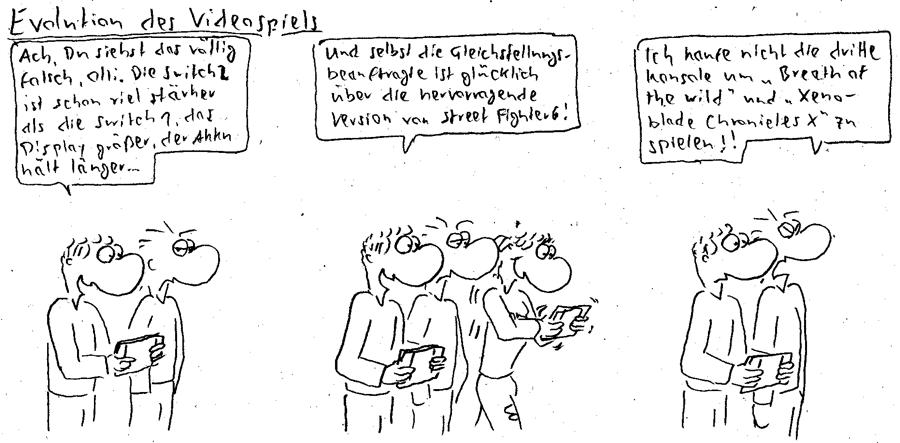 Evolution des Videospiels
Ach, Du siehst das völlig
falsch, Olli. Die Switch 2
ist schon viel stärker
als die Switch 1, das
Display größer, der Akku
hält länger...
Und selbst die Gleichstellungs-
beauftragte ist glücklich
über die hervorragende
Version von Street Fighter 6!
Ich kaufe nicht die dritte
Konsole um „Breath of
the wild" und „Xeno-
blade Chronicles X" zu
spielen!!